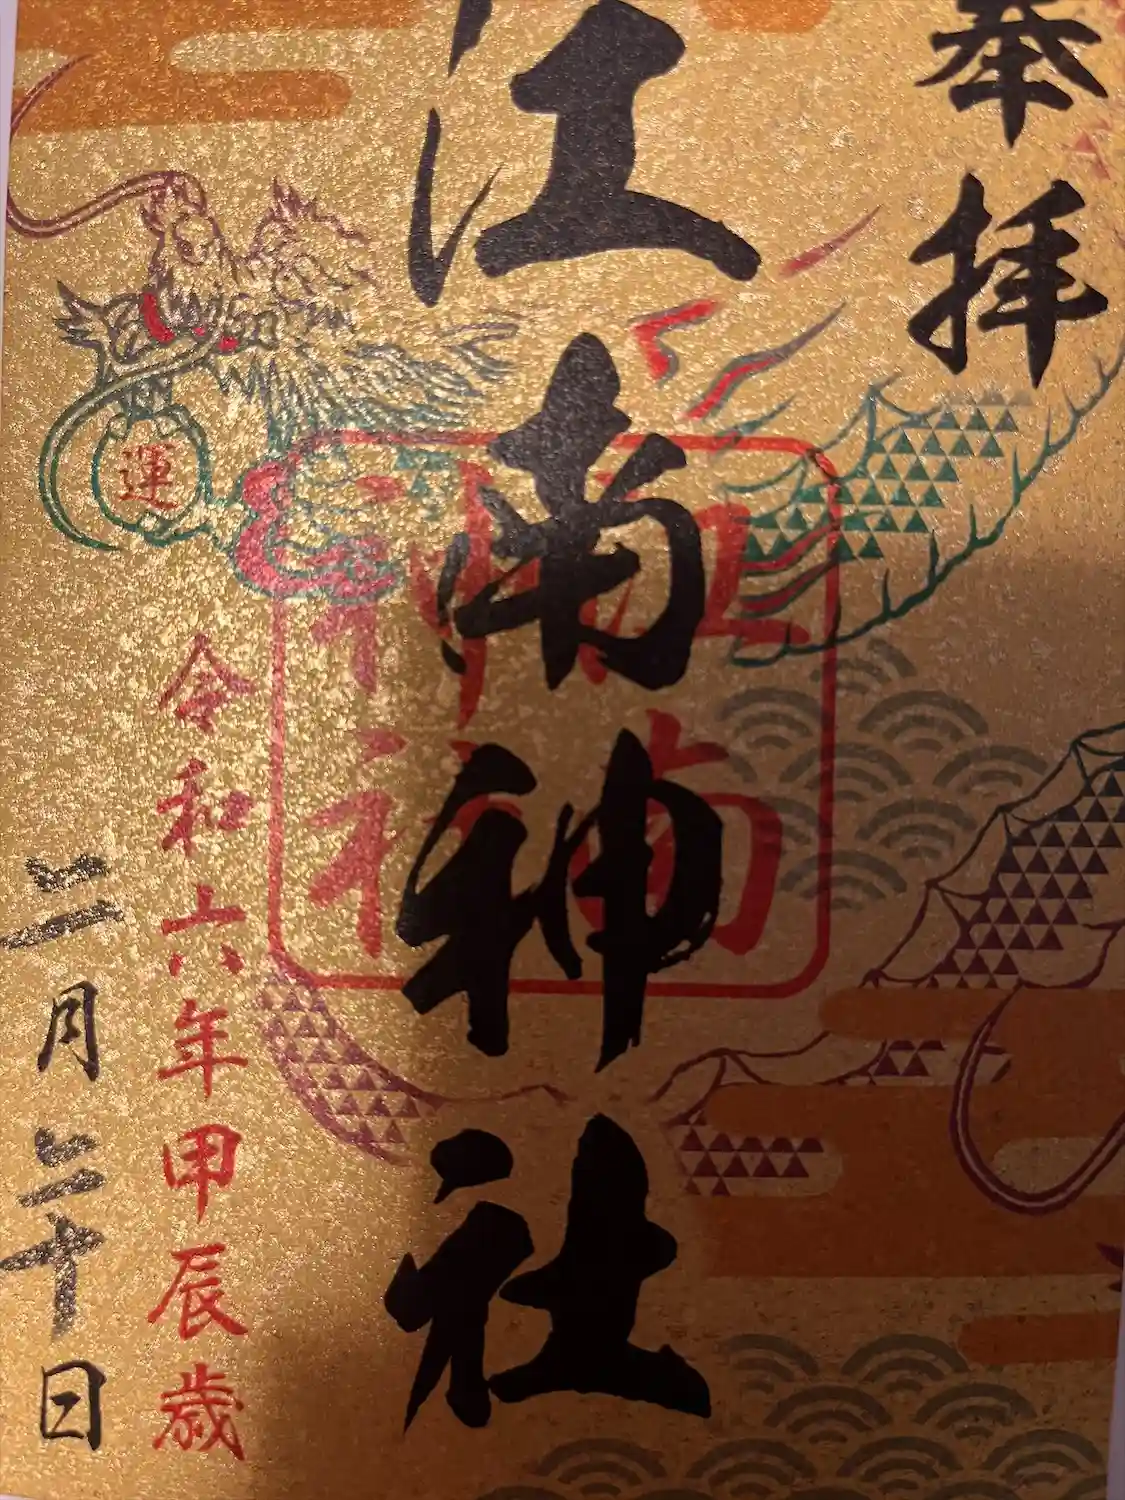 奉拝
江南神社
江南
神社
運
令和六年甲辰歳
二月二十日